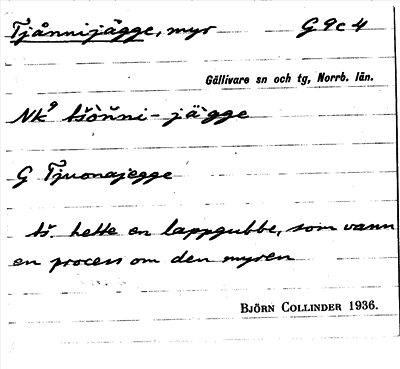 Tjånnijägge, myr G9c4
Gällivare sn och tg, Norrb. län.
Nk⁹ tšòṅ̄ni-jä`gge
G Tjuonajegge
tš. hette en lappgubbe, som vann
en process om den myren
BJÖRN COLLINDER 1936.